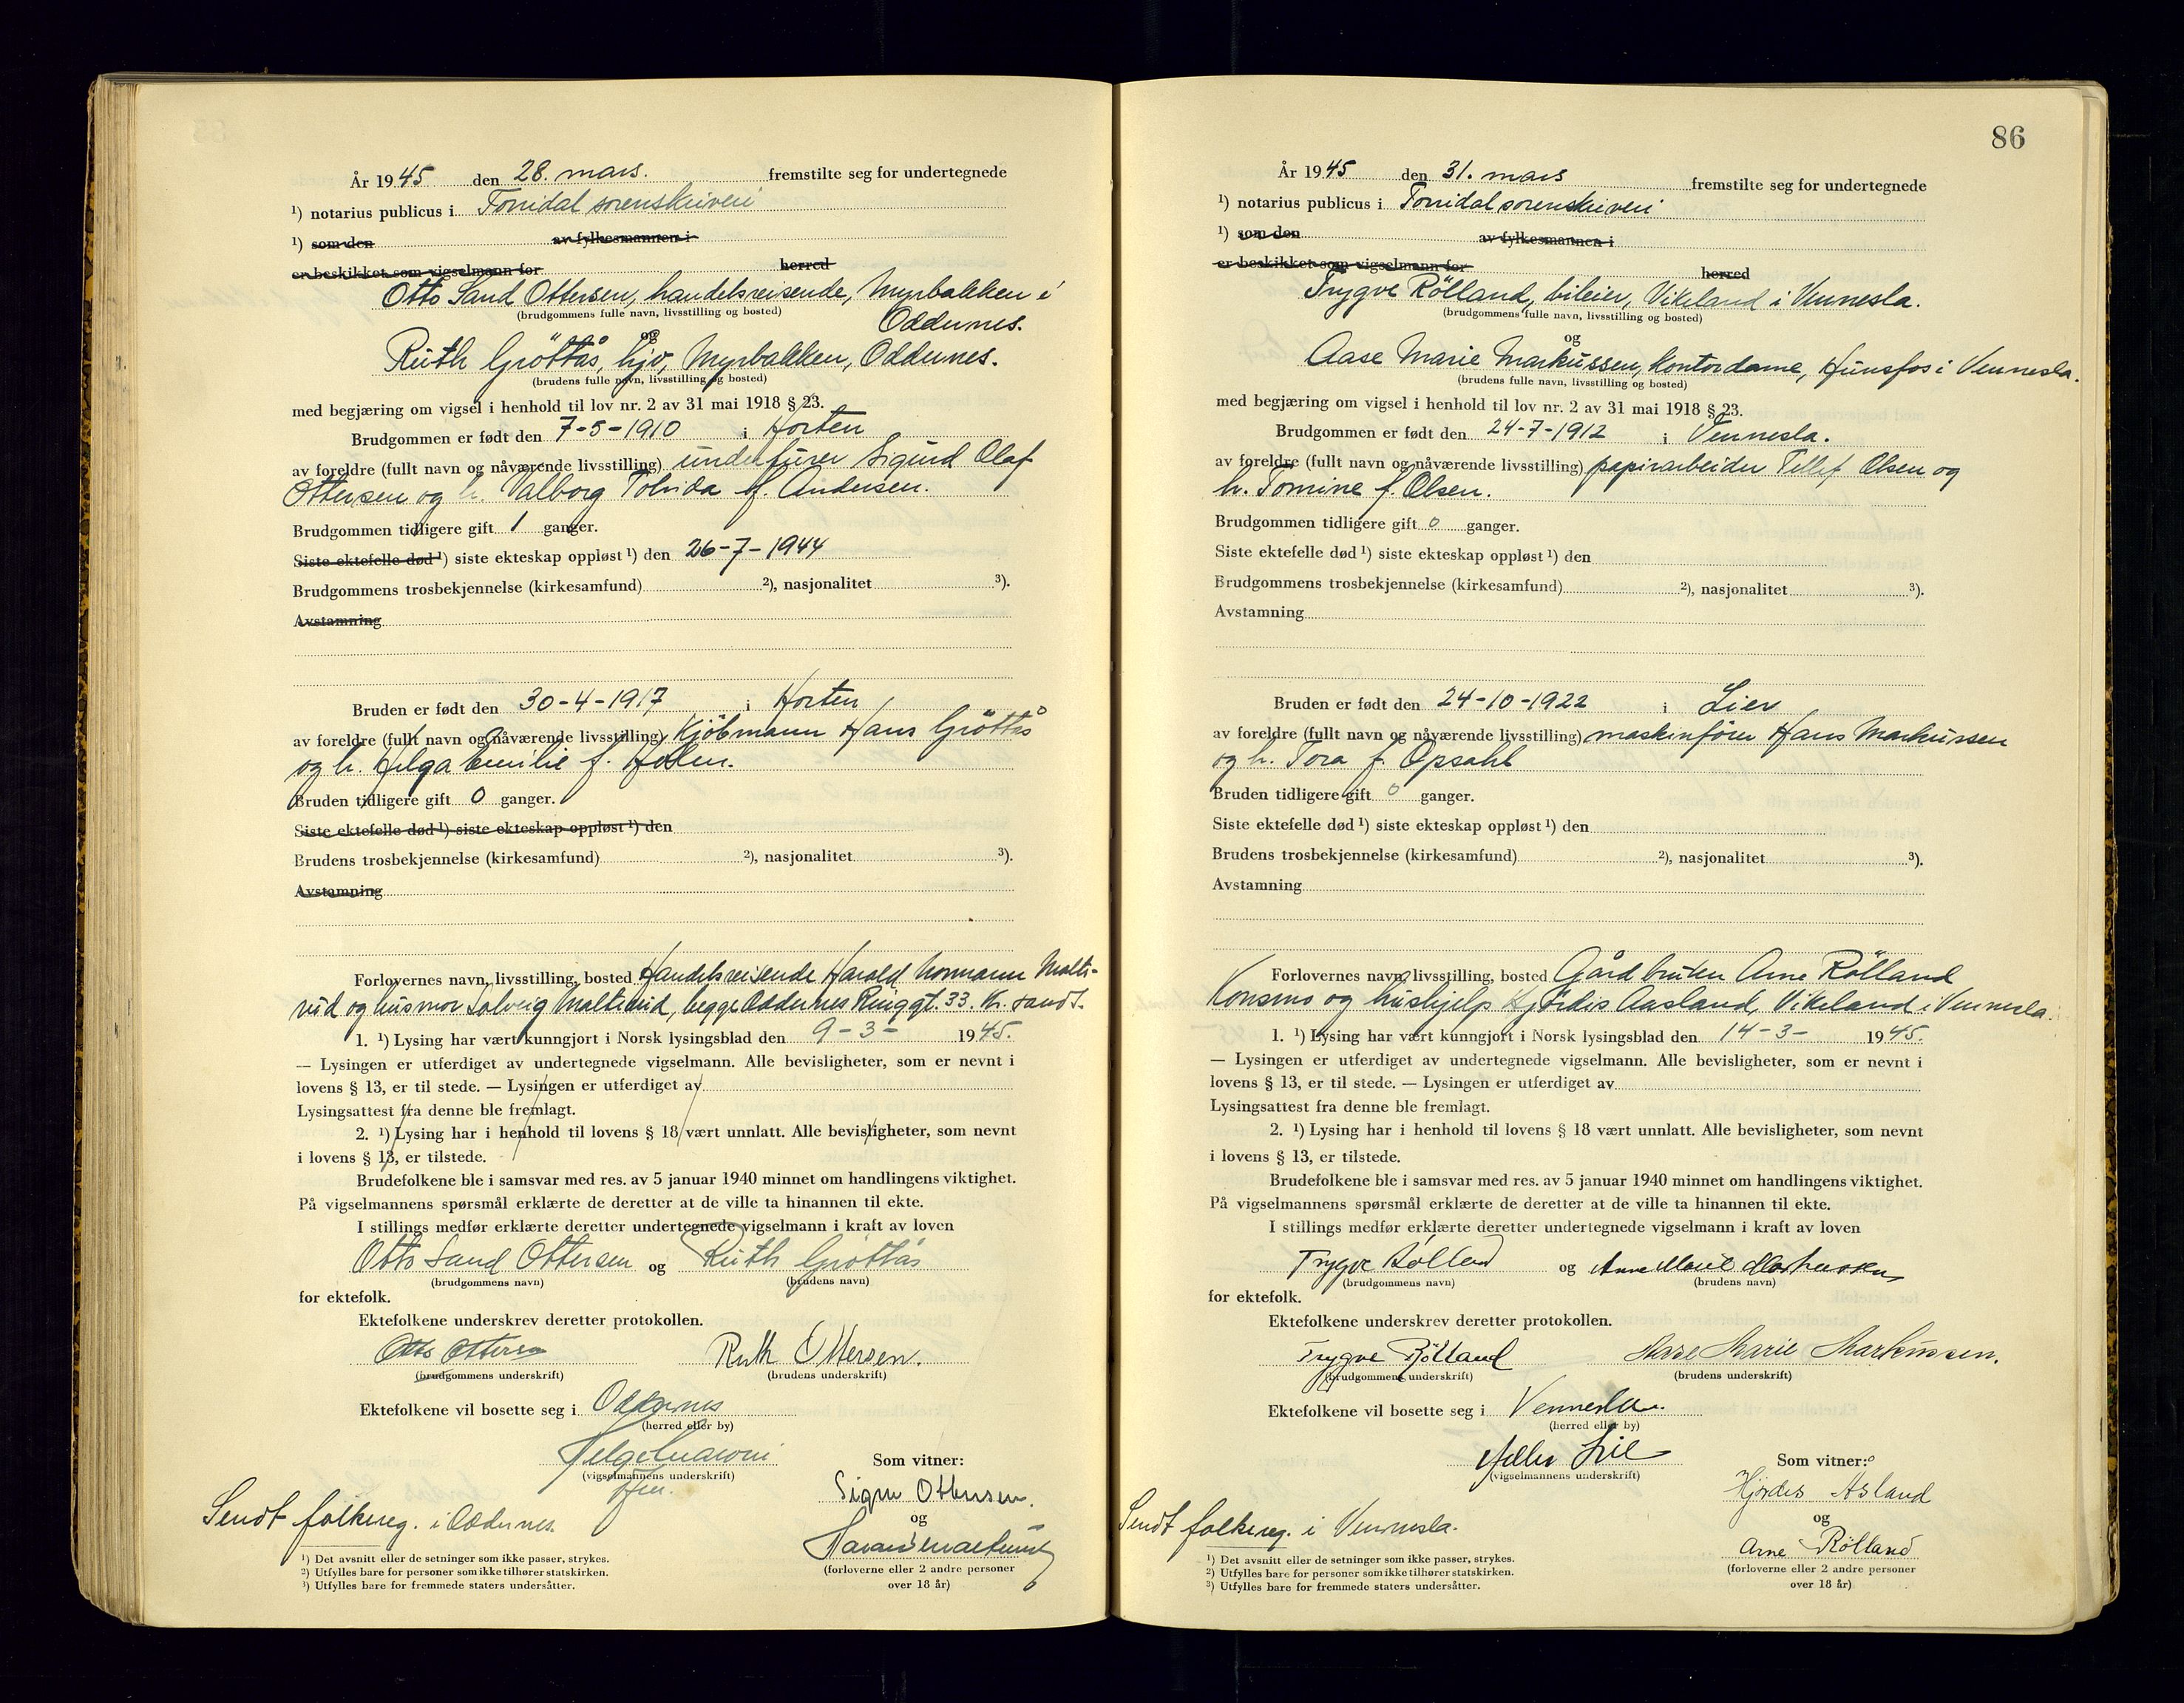 År 1945 den 28. mars. fremstilte seg for undertegnede
¹) notarius publicus i Torridal sorenskriveri
¹) som den av fylkesmannen i
er beskikket som vigselmann for herred
Otto Sand Ottersen, handelsreisende, Myrbakken i
(brudgommens fulle navn, livsstilling og bosted)
Oddernes.
og
Ruth Gröttås, hjv, Myrbakken, Oddernes.
(brudens fulle navn, livsstilling og bosted)
med begjæring om vigsel i henhold til lov nr. 2 av 31 mai 1918 § 23.
Brudgommen er født den 7-5-1910 i Horten
av foreldre (fullt navn og nåværende livsstilling) Sigurd Olaf
Ottersen og h. Valborg f. Andersen.
Brudgommen tidligere gift 1 ganger.
Siste ektefelle død ¹) siste ekteskap oppløst ¹) den 26-7-1944
Brudgommens trosbekjennelse (kirkesamfund) ²), nasjonalitet ³).
Avstamning
Bruden er født den 30-4-1917 i Horten
av foreldre (fullt navn og nåværende livsstilling) Kjöbmann Hans Gröttås
og h. Helga Emilie f. Holen.
Bruden tidligere gift 0 ganger.
Siste ektefelle død ¹) siste ekteskap oppløst ¹) den
Brudens trosbekjennelse (kirkesamfund) ²), nasjonalitet ³).
Avstamning
Forlovernes navn, livsstilling, bosted Handelsreisende Harald Normann Malte-
rud og husmor Solveig Malterud, begge Oddernes Ringgt. 33. Kr. sandS.
1. ¹) Lysing har vært kunngjort i Norsk lysingsblad den 9-3- 1945.
— Lysingen er utferdiget av undertegnede vigselmann. Alle bevisligheter, som er nevnt i
lovens § 13, er til stede. — Lysingen er utferdiget av
Lysingsattest fra denne ble fremlagt.
2. ¹) Lysing har i henhold til lovens § 18 vært unnlatt. Alle bevisligheter, som nevnt
i lovens § 13, er tilstede.
Brudefolkene ble i samsvar med res. av 5 januar 1940 minnet om handlingens viktighet.
På vigselmannens spørsmål erklærte de deretter at de ville ta hinannen til ekte.
I stillings medfør erklærte deretter undertegnede vigselmann i kraft av loven
Otto Sand Ottersen og Ruth Gröttås
(brudgommens navn) (brudens navn)
for ektefolk.
Ektefolkene underskrev deretter protokollen.
Otto Ottersen Ruth Ottersen.
(brudgommens underskrift) (brudens underskrift)
Ektefolkene vil bosette seg i Oddernes
(herred eller by)
(vigselmannens underskrift)
Som vitner:
Signe Ottersen.
og
Sendt folkereg. i Oddernes.
(forloverne eller 2 andre personer
over 18 år)
¹) Det avsnitt eller de setninger som ikke passer, strykes.
²) Utfylles bare for personer som ikke tilhører statskirken.
³) Utfylles bare for fremmede staters undersåtter.
86
År 1945 den 31. mars fremstilte seg for undertegnede
¹) notarius publicus i Torridal sorenskriveri
¹) som den av fylkesmannen i
er beskikket som vigselmann for herred
Trygve Rölland, bileier, Vikeland i Vennesla.
(brudgommens fulle navn, livsstilling og bosted)
og
Aase Marie Markussen, kontordame, Hunsfos i Vennesla.
(brudens fulle navn, livsstilling og bosted)
med begjæring om vigsel i henhold til lov nr. 2 av 31 mai 1918 § 23.
Brudgommen er født den 24-7-1912 i Vennesla.
av foreldre (fullt navn og nåværende livsstilling) papirarbeider Tellef Olsen og
h. Tomine f. Olsen.
Brudgommen tidligere gift 0 ganger.
Siste ektefelle død ¹) siste ekteskap oppløst ¹) den
Brudgommens trosbekjennelse (kirkesamfund) ²), nasjonalitet ³).
Avstamning
Bruden er født den 24-10-1922 i Lier
av foreldre (fullt navn og nåværende livsstilling) maskinfører Hans Markussen
og h. Tora f. Opsahl
Bruden tidligere gift 0 ganger.
Siste ektefelle død ¹) siste ekteskap oppløst ¹) den
Brudens trosbekjennelse (kirkesamfund) ²), nasjonalitet ³).
Avstamning
Forlovernes navn, livsstilling, bosted Gårdbruker Arne Rölland
Konsmo og hushjelp Hjördis Aasland, Vikeland i Vennesla.
1. ¹) Lysing har vært kunngjort i Norsk lysingsblad den 14-3- 1945.
— Lysingen er utferdiget av undertegnede vigselmann. Alle bevisligheter, som er nevnt i
lovens § 13, er til stede. — Lysingen er utferdiget av
Lysingsattest fra denne ble fremlagt.
2. ¹) Lysing har i henhold til lovens § 18 vært unnlatt. Alle bevisligheter, som nevnt
i lovens § 13, er tilstede.
Brudefolkene ble i samsvar med res. av 5 januar 1940 minnet om handlingens viktighet.
På vigselmannens spørsmål erklærte de deretter at de ville ta hinannen til ekte.
I stillings medfør erklærte deretter undertegnede vigselmann i kraft av loven
Trygve Rölland og Anne Marie Markussen
(brudgommens navn) (brudens navn)
for ektefolk.
Ektefolkene underskrev deretter protokollen.
Trygve Rölland Aase Marie Markussen.
(brudgommens underskrift) (brudens underskrift)
Ektefolkene vil bosette seg i Vennesla.
(herred eller by)
(vigselmannens underskrift)
Som vitner:
Hjördis Asland
og
Arne Rölland
Sendt folkereg. i Vennesla.
(forloverne eller 2 andre personer
over 18 år)
¹) Det avsnitt eller de setninger som ikke passer, strykes.
²) Utfylles bare for personer som ikke tilhører statskirken.
³) Utfylles bare for fremmede staters undersåtter.